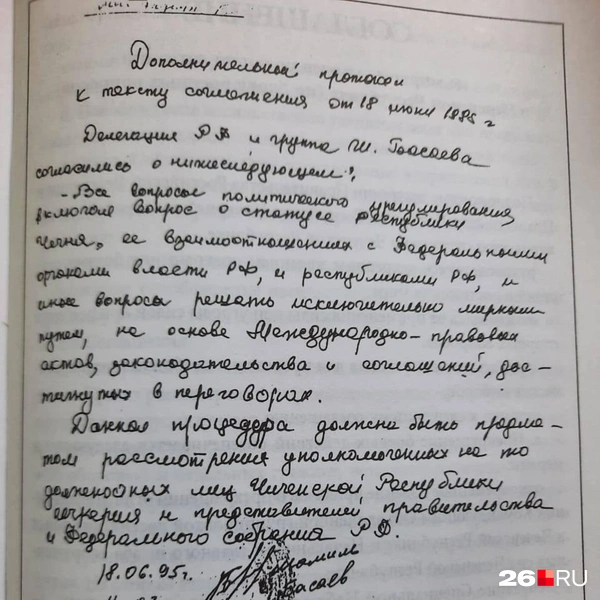 Дополнительный протокол
к тексту соглашения от 18 июня 1995 г
Делегация РФ и группа Ш. Басаева
согласились о нижеследующем:
- Все вопросы политического урегулирования,
включая вопрос о статусе республики
Чечня, ее взаимоотношениях с Федеральными
органами власти РФ, и республиками РФ, и
иные вопросы решать исключительно мирным
путем, на основе Международно-правовых
актов, законодательства и соглашений, дос-
тигнутых в переговорах.
Данная процедура должна быть предме-
том рассмотрения уполномоченных на то
должностных лиц Чеченской Республики
Ичкерия и представителей правительства
и Федерального собрания РФ.
18.06.95г.
Шамиль
Басаев
26RU